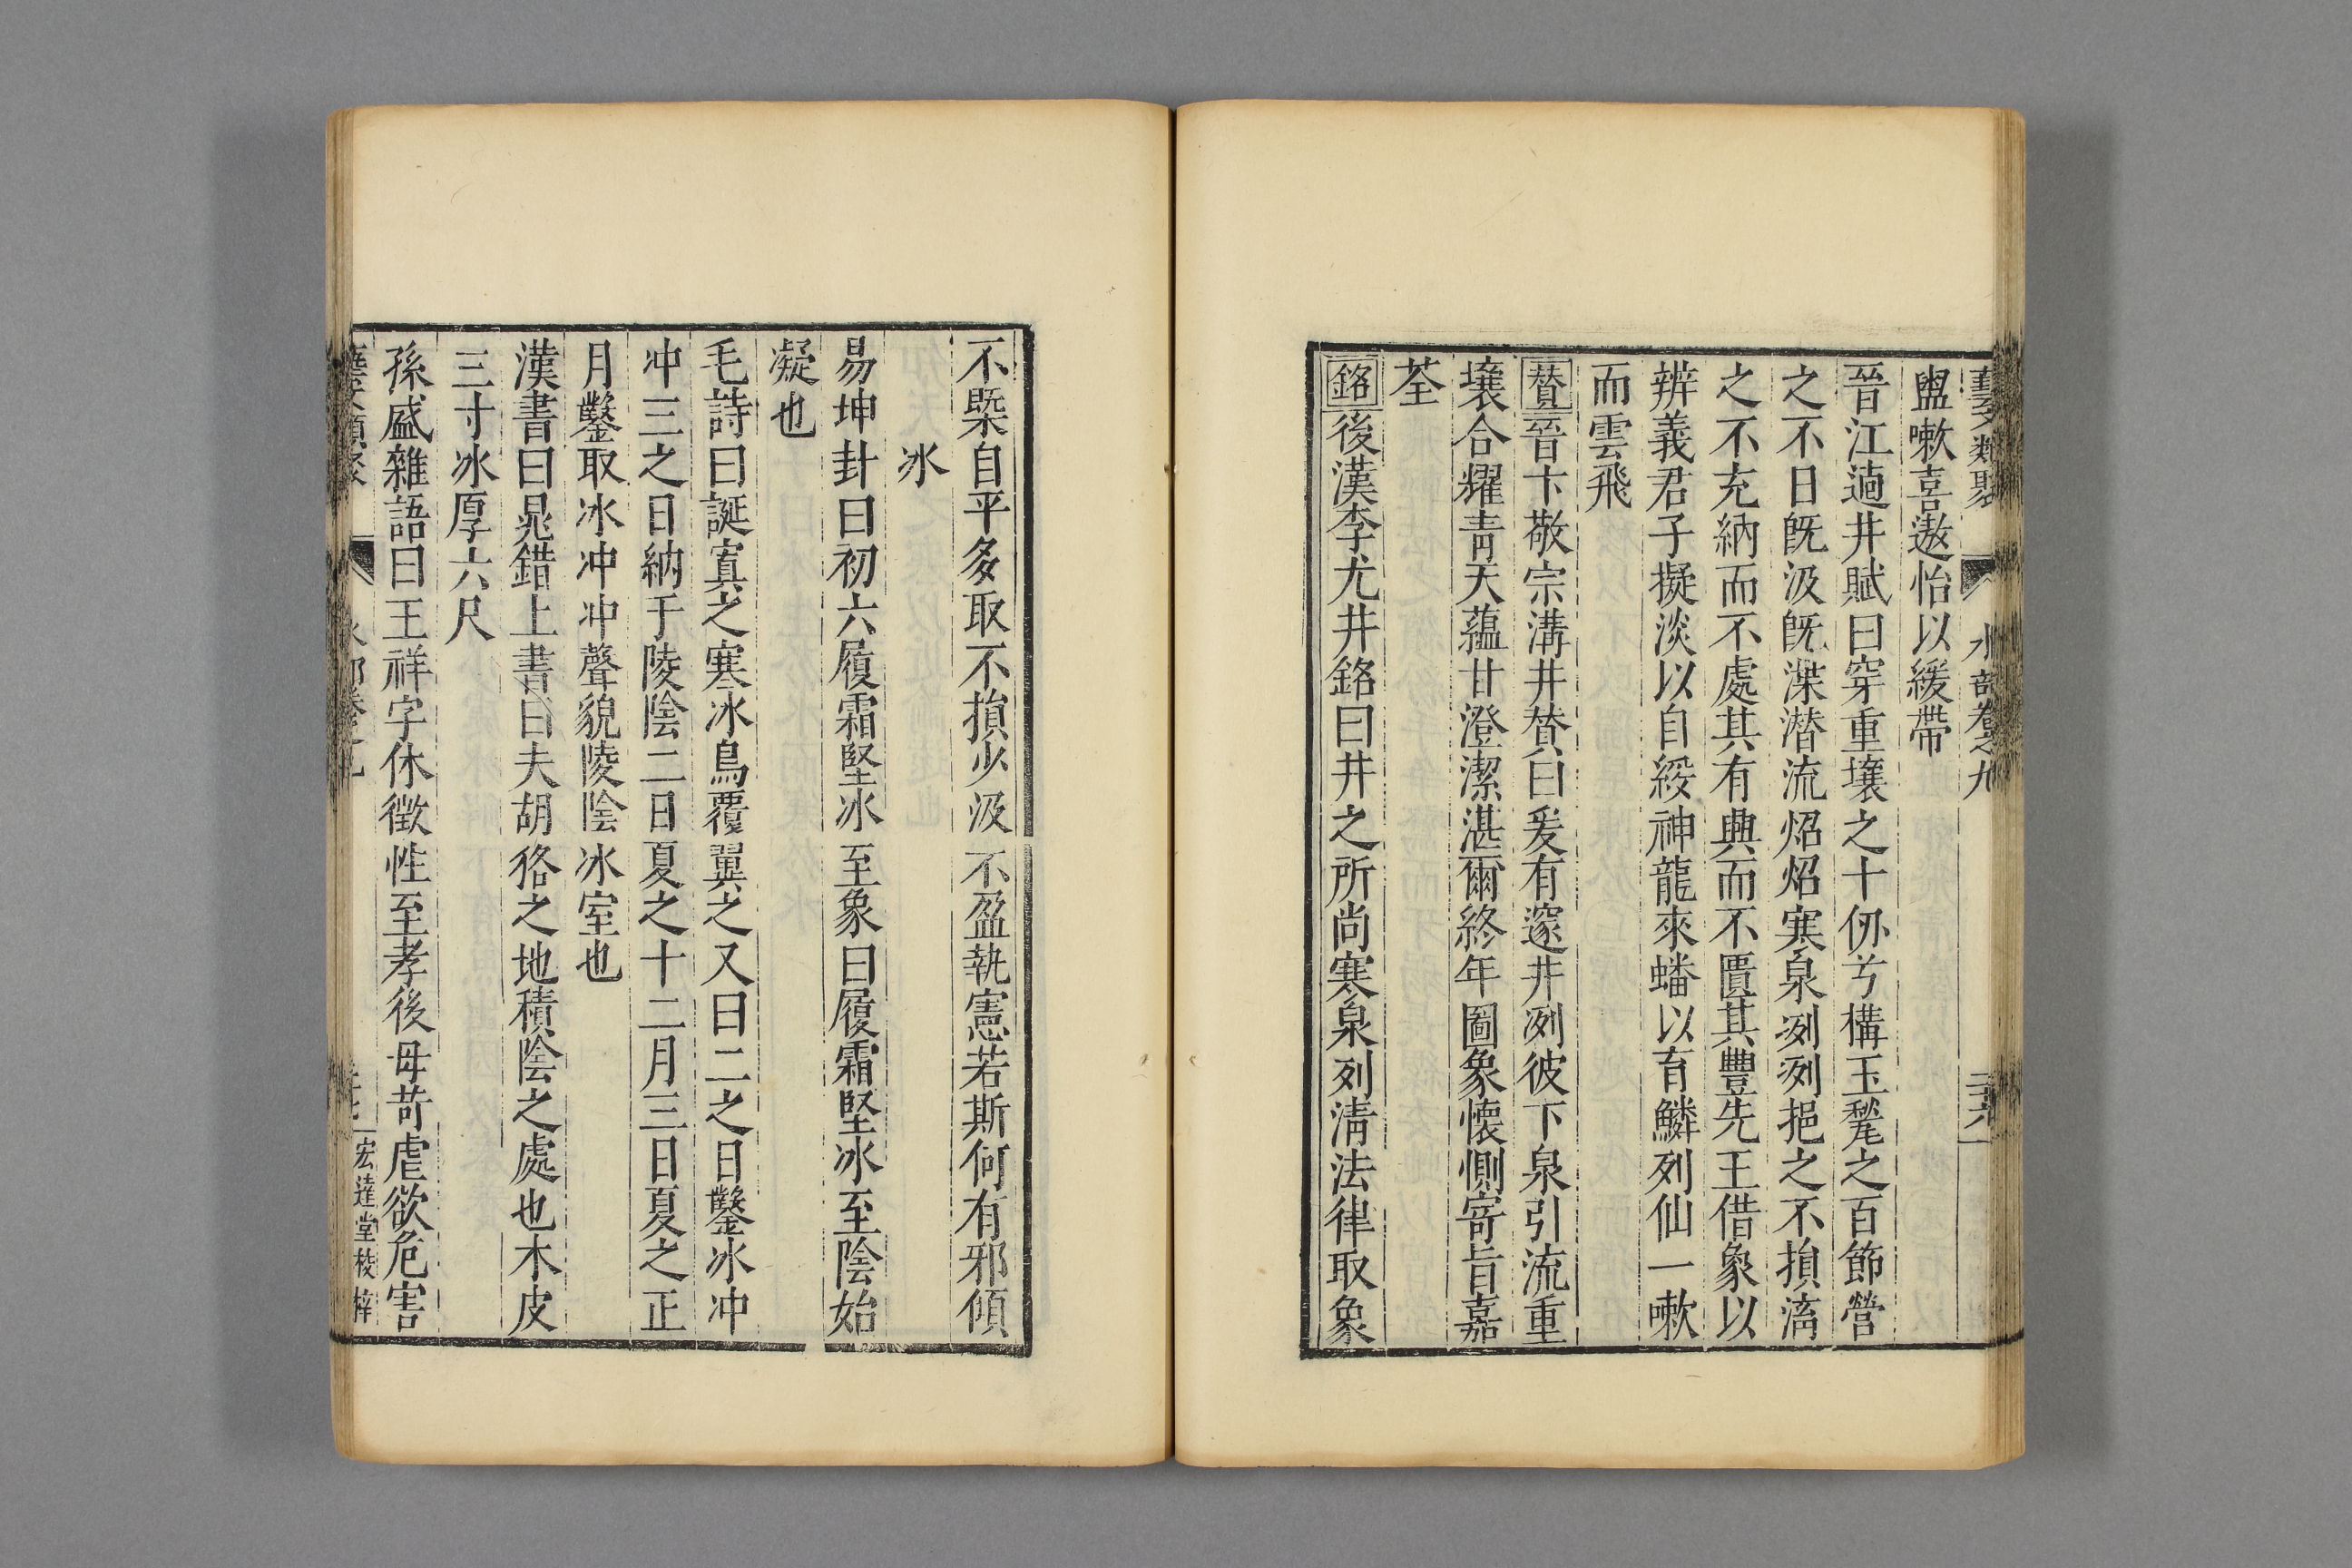 藝文類聚 水部卷之九 三十六
盥嗽喜遨怡以緩帶
晉江逌井賦曰穿重壤之十仭兮構玉甃之百節營
之不日旣汲旣渫潜流炤炤寒泉冽冽挹之不損滀
之不充納而不處其有興而不匱其豐先王借象以
辨義君子擬淡以自綏神龍來蟠以育鱗列仙一嗽
而雲飛
贊晉卞敬宗溝井贊曰爰有邃井冽彼下泉引流重
壤合耀靑天蘊甘澄潔湛爾終年圖象懷惻寄旨嘉
荃
銘後漢李尤井銘曰井之所尚寒泉列淸法律取象
不槩自平多取不損少汲不盈執憲若斯何有邪傾
冰
易坤卦曰初六履霜堅冰至象曰履霜堅冰至陰始
凝也
毛詩曰誕寘之寒冰鳥覆翼之又曰二之日鑿冰冲
冲三之日納于陵陰二日夏之十二月三日夏之正
月鑿取冰冲冲聲貌陵陰冰室也
漢書曰晁錯上書曰夫胡狢之地積陰之處也木皮
三寸冰厚六尺
孫盛雜語曰王祥字休徵性至孝後母苛虐欲危害
藝文類聚 水部卷之九 宏達堂校梓